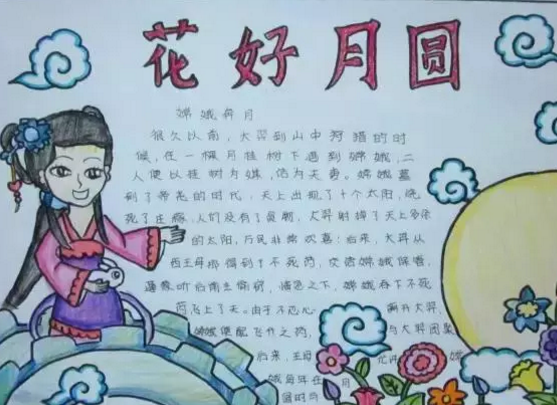 花好月圆
嫦娥奔月
很久以前，大羿到山中狩猎的时
候，在一棵月桂树下遇到嫦娥，二
人便以桂树为媒，结为夫妻。嫦娥
到了帝尧的时代，天上出现了十个太阳，烧
死了庄稼，人们没有了食粮，大羿射掉了天上多余
的太阳，万民非常欢喜；后来，大羿从
西王母那得到了不死药，交给嫦娥保管，
逢蒙听后前去偷窃，情急之下，嫦娥吞下不死
药飞上了天。由于不忍心离开大羿，
嫦娥便 飞升之药，与大羿团聚
后来，王母 允许 嫦
娥每年在 月
圆时